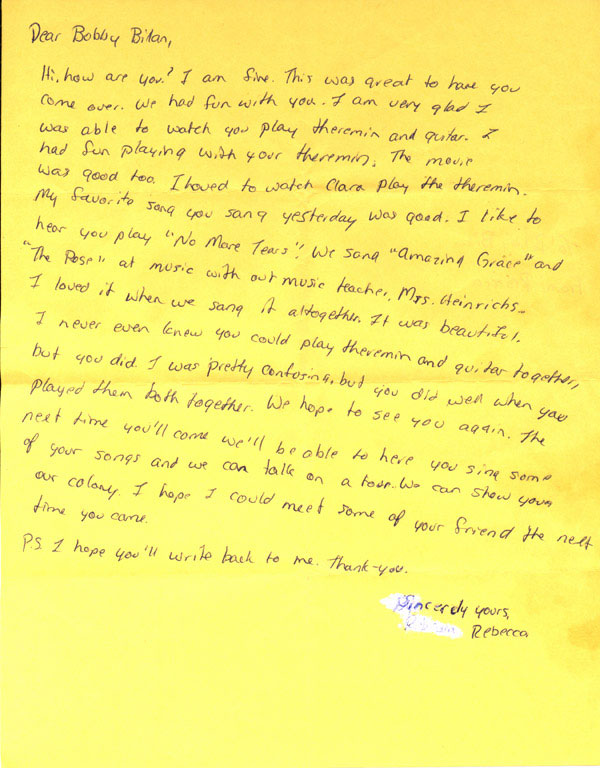 Dear Bobby Bitan,
Hi, how are you? I am fine. This was great to have you
come over. We had fun with you. I am very glad I
was able to watch you play theremin and guitar. I
had fun playing with your theremin. The movie
was good too. I loved to watch Clara play the theremin.
My favorite song you sang yesterday was good. I like to
hear you play "No More Tears". We sang "Amazing Grace" and
"The Rose" at music with out music teacher, Mrs. Heinrichs.
I loved it when we sang it altogether. It was beautiful.
I never even knew you could play theremin and guitar together,
but you did. I was pretty confusing, but you did well when you
played them both together. We hope to see you again. The
next time you'll come we'll be able to here you sing some
of your songs and we can talk on a tour. We can show you
our colony. I hope I could meet some of your friend the next
time you came.
P.S. I hope you'll write back to me. Thank-you.
Sincerely yours,
Rebecca